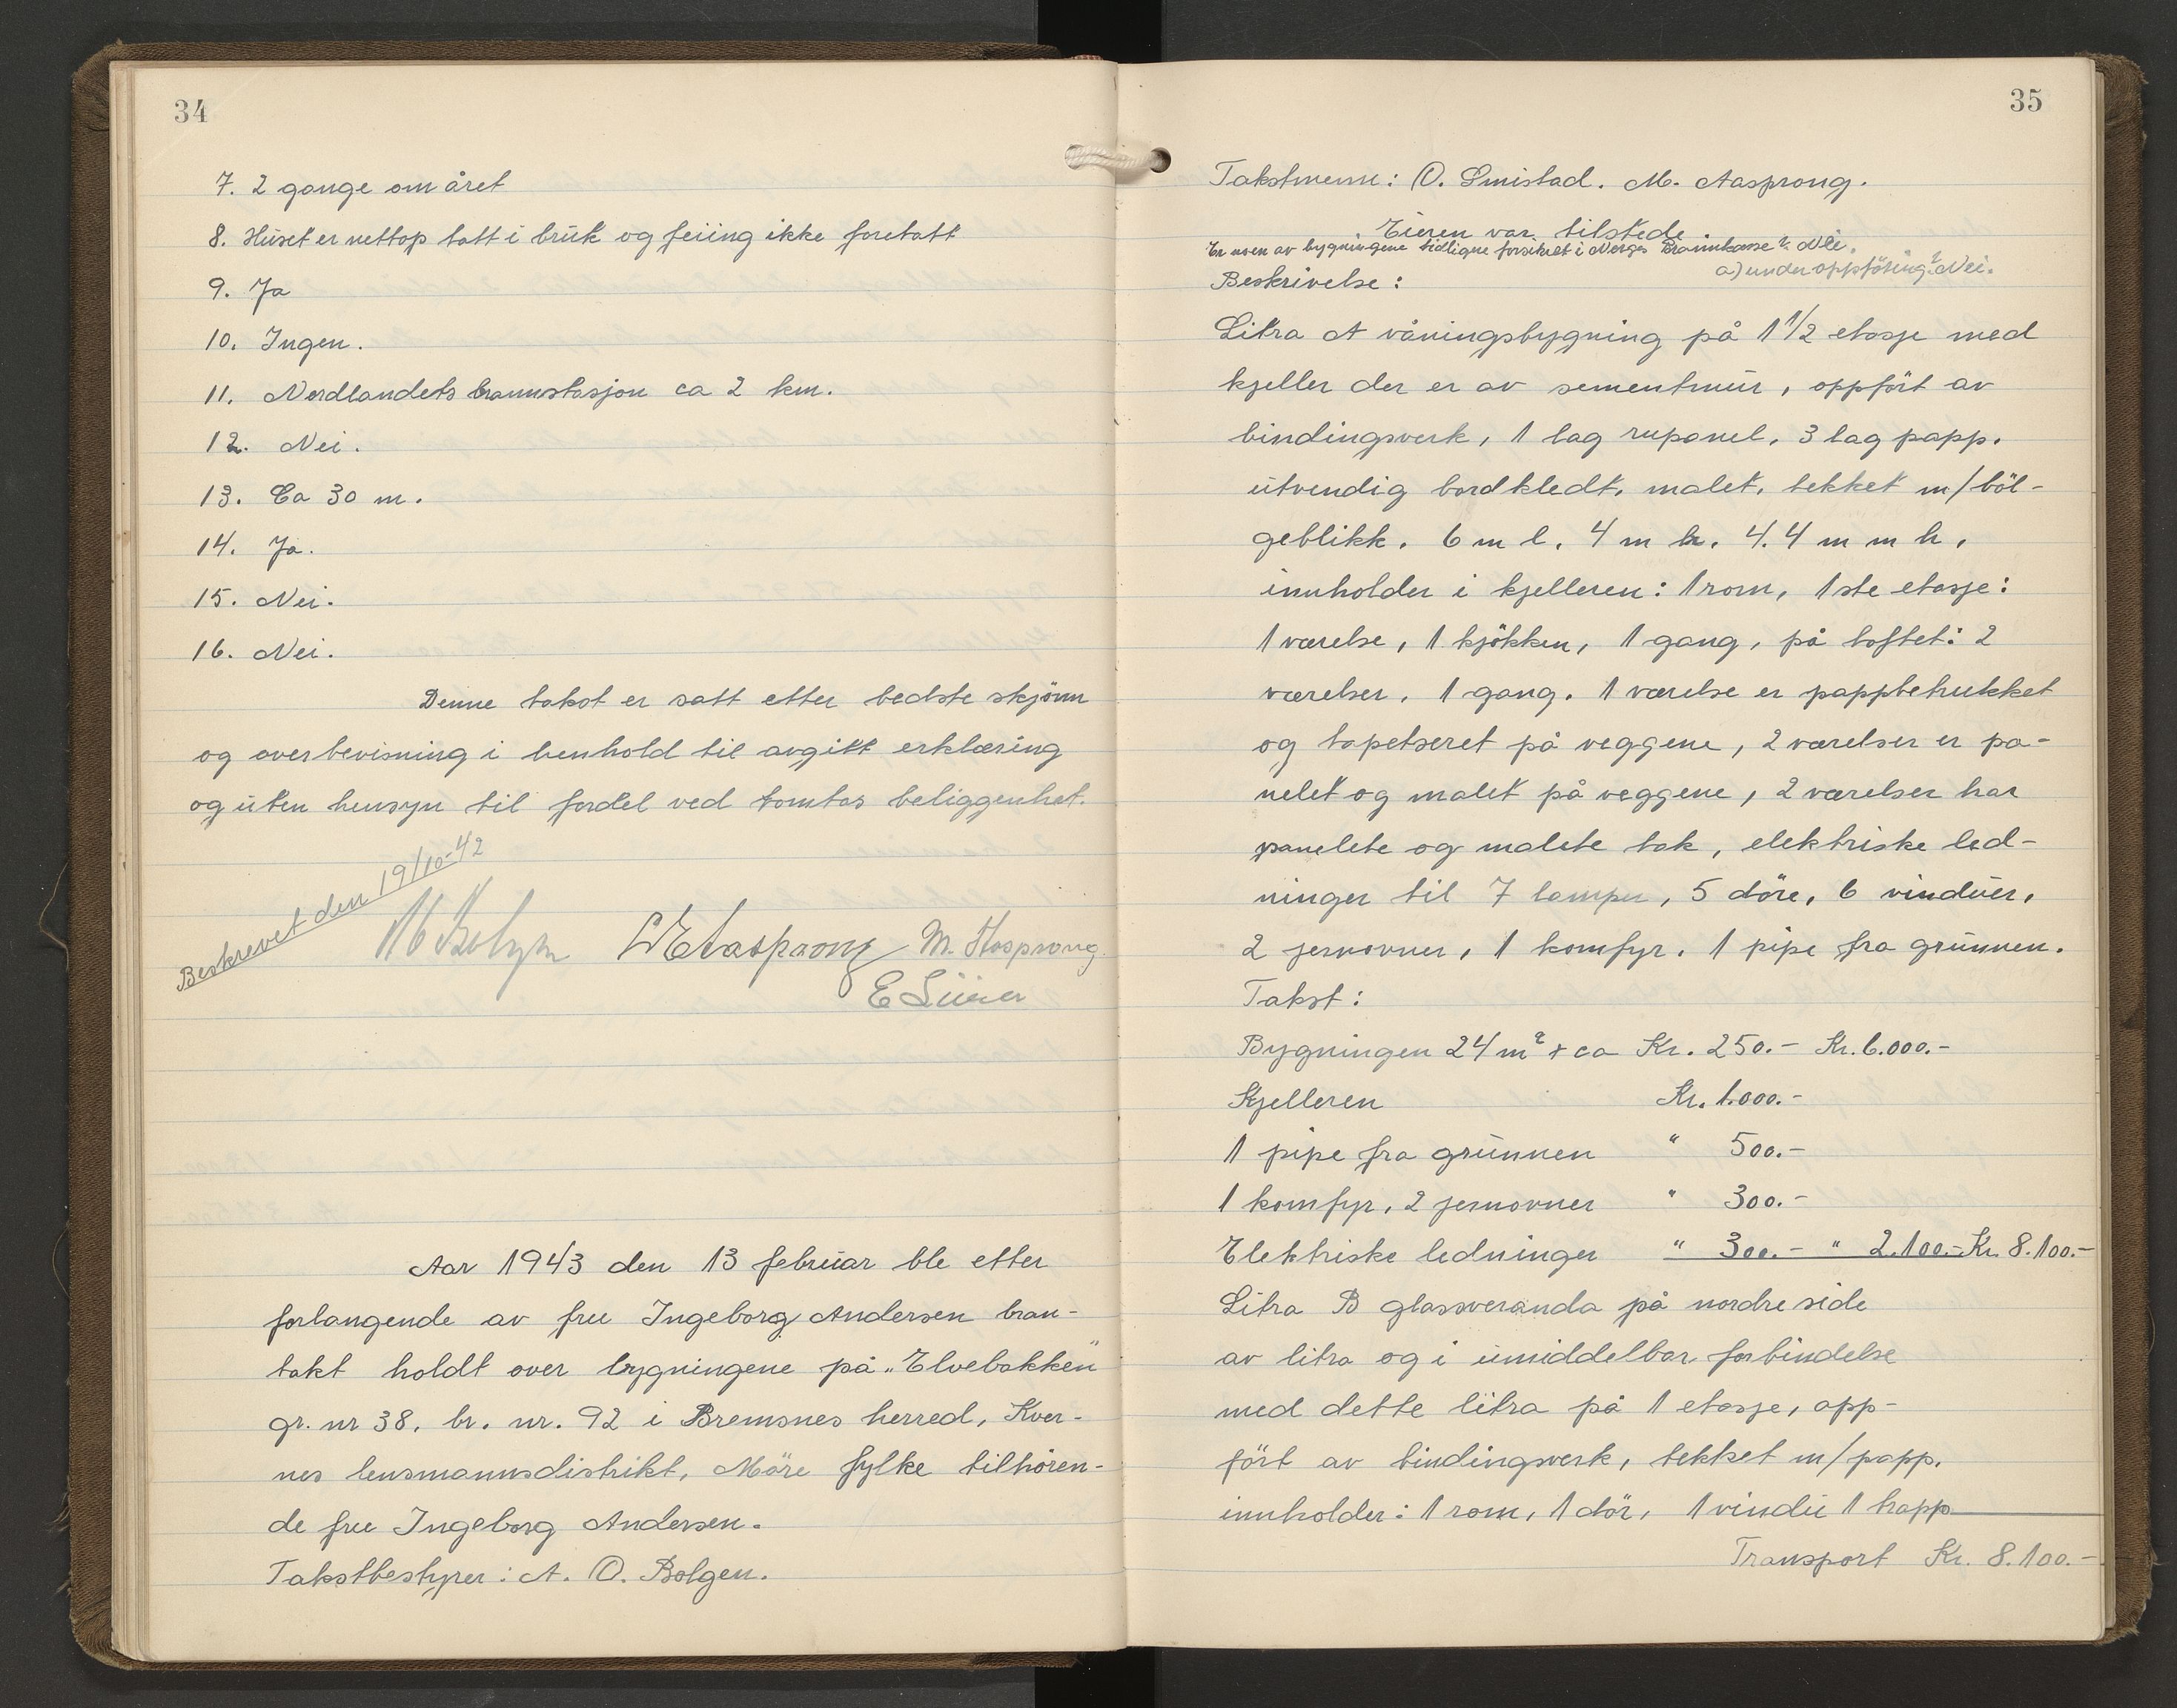 34
7. 2 gange om året
8. Huset er nettop tatt i bruk og feiing ikke foretatt
9. Ja
10. Ingen.
11. Nordlandets brannstasjon ca 2 km.
12. Nei.
13. Ca 30 m.
14. Ja.
15. Nei.
16. Nei.
Denne takst er satt etter bedste skjönn
og overbevisning i henhold til avgitt erklæring
og uten hensyn til fordel ved tomtas beliggenhet.
Beskrevet den 19/10-42
M. Aasprong
Aar 1943 den 13 februar ble etter
forlangende av fru Ingeborg Andersen bran-
takt holdt over bygningene på „Elvebakken"
gr. nr 38, br. nr. 92 i Bremsnes herred, Kver-
nes lensmannsdistrikt, Möre fylke tilhören-
de fru Ingeborg Andersen.
Takstbestyrer: A. O. Bolgen.
35
Takstmenn: O. Smistad. M. Aasprong.
Eieren var tilstede.
Er noen av bygningene tidligere forsikret i Norges Brannkasse? Nei.
a) under oppföring? Nei.
Beskrivelse:
Litra A våningsbygning på 1 1/2 etasje med
kjeller der er av sementmur, oppfört av
bindingsverk, 1 lag rupanel, 3 lag papp.
utvendig bordkledt, malet, tekket m/böl-
geblikk. 6 m l. 4 m b. 4.4 m m h.
innholder i kjelleren: 1 rom, 1ste etasje:
1 værelse, 1 kjökken, 1 gang, på loftet: 2
værelser, 1 gang. 1 værelse er pappbetrukket
og tapetseret på veggene, 2 værelser er pa-
nelet og malet på veggene, 2 værelser har
panelete og malete tak, elektriske led-
ninger til 7 lamper, 5 döre, 6 vinduer,
2 jernovner, 1 komfyr. 1 pipe fra grunnen.
Takst:
Bygningen 24 m² x ca Kr. 250.- Kr. 6.000.-
Kjelleren Kr. 1.000.-
1 pipe fra grunnen " 500.-
1 komfyr, 2 jernovner " 300.-
Elektriske ledninger " 300.- " 2.100.- Kr. 8.100.-
Litra B glassveranda på nordre side
av litra og i umiddelbar forbindelse
med dette litra på 1 etasje, opp-
fört av bindingsverk, tekket m/papp.
innholder: 1 rom, 1 dör, 1 vindu 1 trapp
Transport Kr. 8.100.-